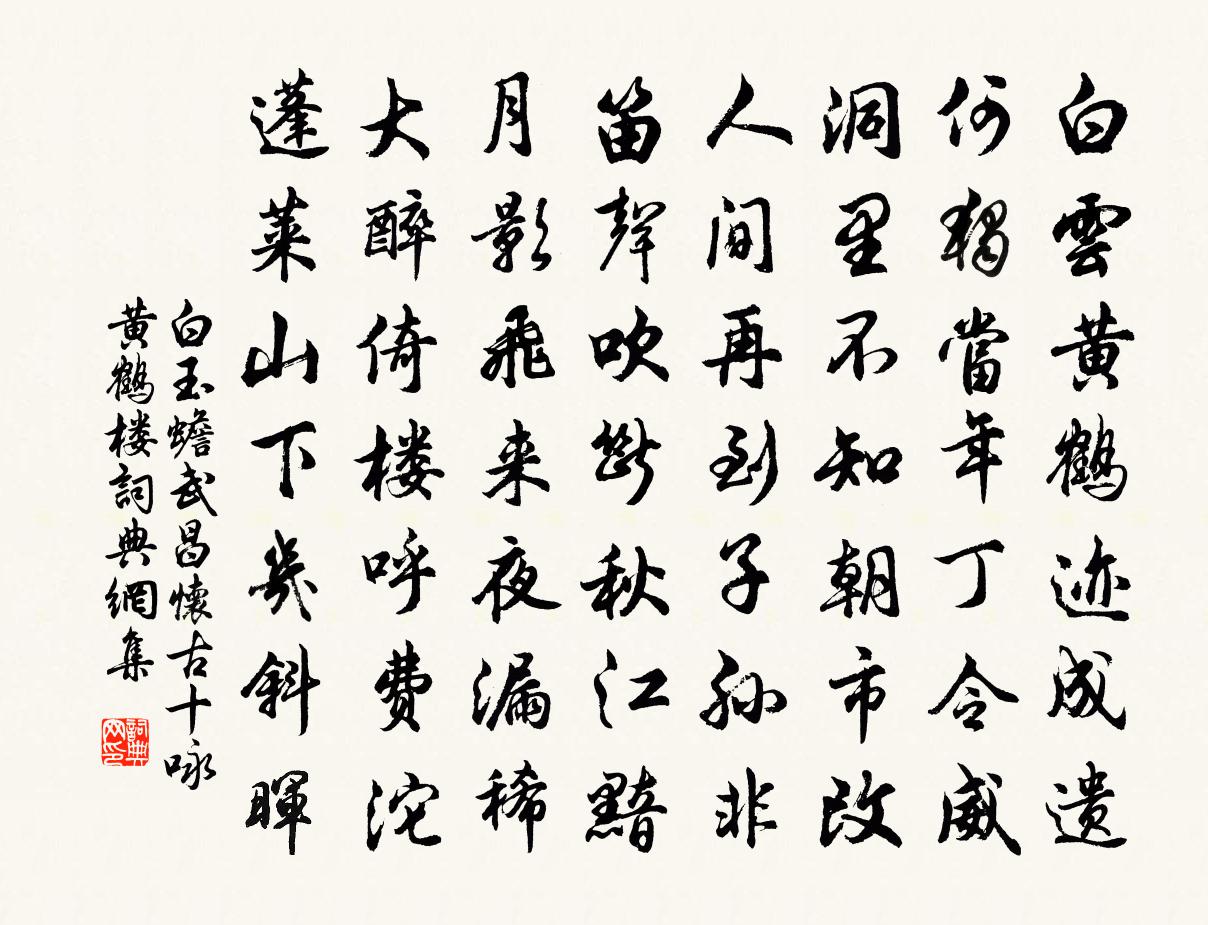 白雲黄鶴迹成遗
何獨當年丁令威
洞里不知朝市改
人间再到子孙非
笛聲吹斷秋江黯
月影飛来夜漏稀
大醉倚楼呼費沱
蓬萊山下幾斜暉
白玉蟾武昌懷古十咏
黄鶴楼詞典網集
詞典网印